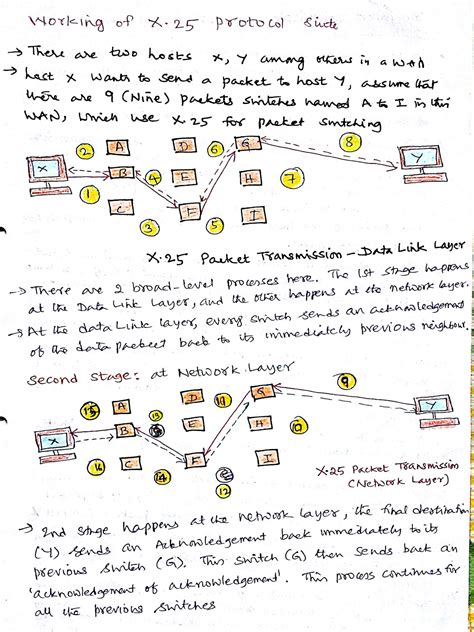 Working of X.25 protocol Suite
→ There are two hosts X, Y among others in a WAN
→ host X wants to send a packet to host Y, assume that
there are 9 (Nine) packets switches named A to I in this
WAN, which use X.25 for packet switching
2 A D 6 G 8
X B 4 E H 7 Y
1 C F I
3 5
X.25 Packet Transmission - Data Link Layer
→ There are 2 broad-level processes here. The 1st stage happens
at the Data Link Layer, and the other happens at the network layer.
→ At the data Link layer, every switch sends an acknowledgement
of the data packet back to its immediately previous neighbour.
Second Stage: at Network Layer
15 A D G 9
X B 13 E H 10 Y
16 C 14 F I
12
X.25 Packet Transmission
(Network Layer)
→ 2nd stage happens at the network layer, the final destination
(Y) sends an Acknowledgement back immediately to its
previous switch (G). This switch (G) then sends back an
'acknowledgement of acknowledgement'. This process continues for
all the previous switches